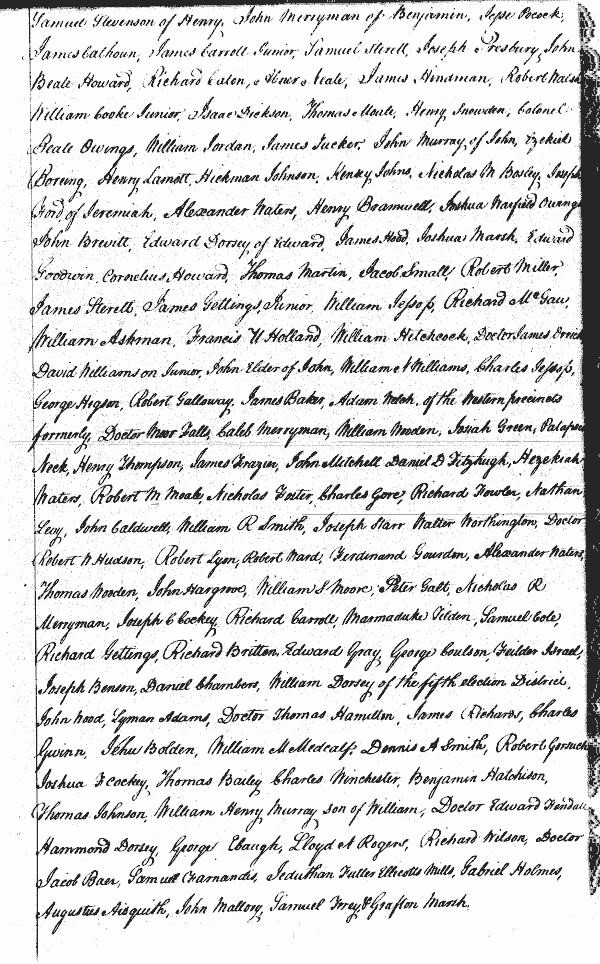 Samuel Stevenson of Henry, John Merryman of Benjamin, Jesse Pocock,
James Calhoun, James Carroll Junior, Samuel Sterett, Joseph Presbury, John
Beale Howard, Richard Caton, Abner Neale, James Hindman, Robert Walsh
William Cooke Junior, Isaac Dickson, Thomas Moale, Henry Snowden, Colonel
Beale Owings, William Jordan, James Tucker, John Murray of John, Ezekiel
Boreing, Henry Lamott, Hickman Johnson, Henry Johns, Nicholas M Bosley, Joseph
Ford of Jeremiah, Alexander Waters, Henry Bramwell, Joshua Warfield Owings
John Brevitt, Edward Dorsey of Edward, James Hood, Joshua Marsh, Edward
Goodwin, Cornelius Howard, Thomas Martin, Jacob Small, Robert Miller,
James Sterett, James Gettings, Junior, William Jessop, Richard McGaw,
William Askman, Francis U Holland, William Hitchcock, Doctor James
David Williamson Junior, John Elder of John, William A Williams, Charles Jessop,
George Higson, Robert Galloway, James Baker, Adam Welch, of the Western precincts
formerly, Doctor Moor Falls, Caleb Merryman, William Wooden, Josiah Green, Patapsco
Neck, Henry Thompson, James Frazier, John Mitchell Daniel D Fitzhugh, Hezekiah
Waters, Robert M Moale, Nicholas Foster, Charles Gore, Richard Fowler, Nathan
Levy, John Caldwell, William R Smith, Joseph Starr Walter Worthington, Doctor
Robert W Hudson, Robert Lyon, Robert Ward, Ferdinand Gourdon, Alexander Waters,
Thomas Wooden, John Hargrove, William S Moore, Peter Galt, Nicholas R
Merryman, Joseph C Cockey, Richard Carroll, Marmaduke Tilden, Samuel Cole,
Richard Gettings, Richard Britton, Edward Gray, George Coulson, Feilder Israel,
Joseph Benson, Daniel Chambers, William Dorsey of the fifth election District,
John Wood, Lyman Adams, Doctor Thomas Hamilton, James Richards, Charles
Gwinn, Jehu Bolden, William M Medcalf, Dennis A Smith, Robert Gorsuch
Joshua F Cockey, Thomas Bailey Charles Winchester, Benjamin Hatchison,
Thomas Johnson, William Henry Murray son of William, Doctor Edward Tendall
Hammond Dorsey, George Ebaugh, Lloyd N Rogers, Richard Wilson, Doctor
Jacob Baer, Samuel Charnandis, Jeduthan Fuller Ellicotts Mills, Gabriel Holmes,
Augustus Aisquith, John Mallory, Samuel Frey & Grafton Marsh.